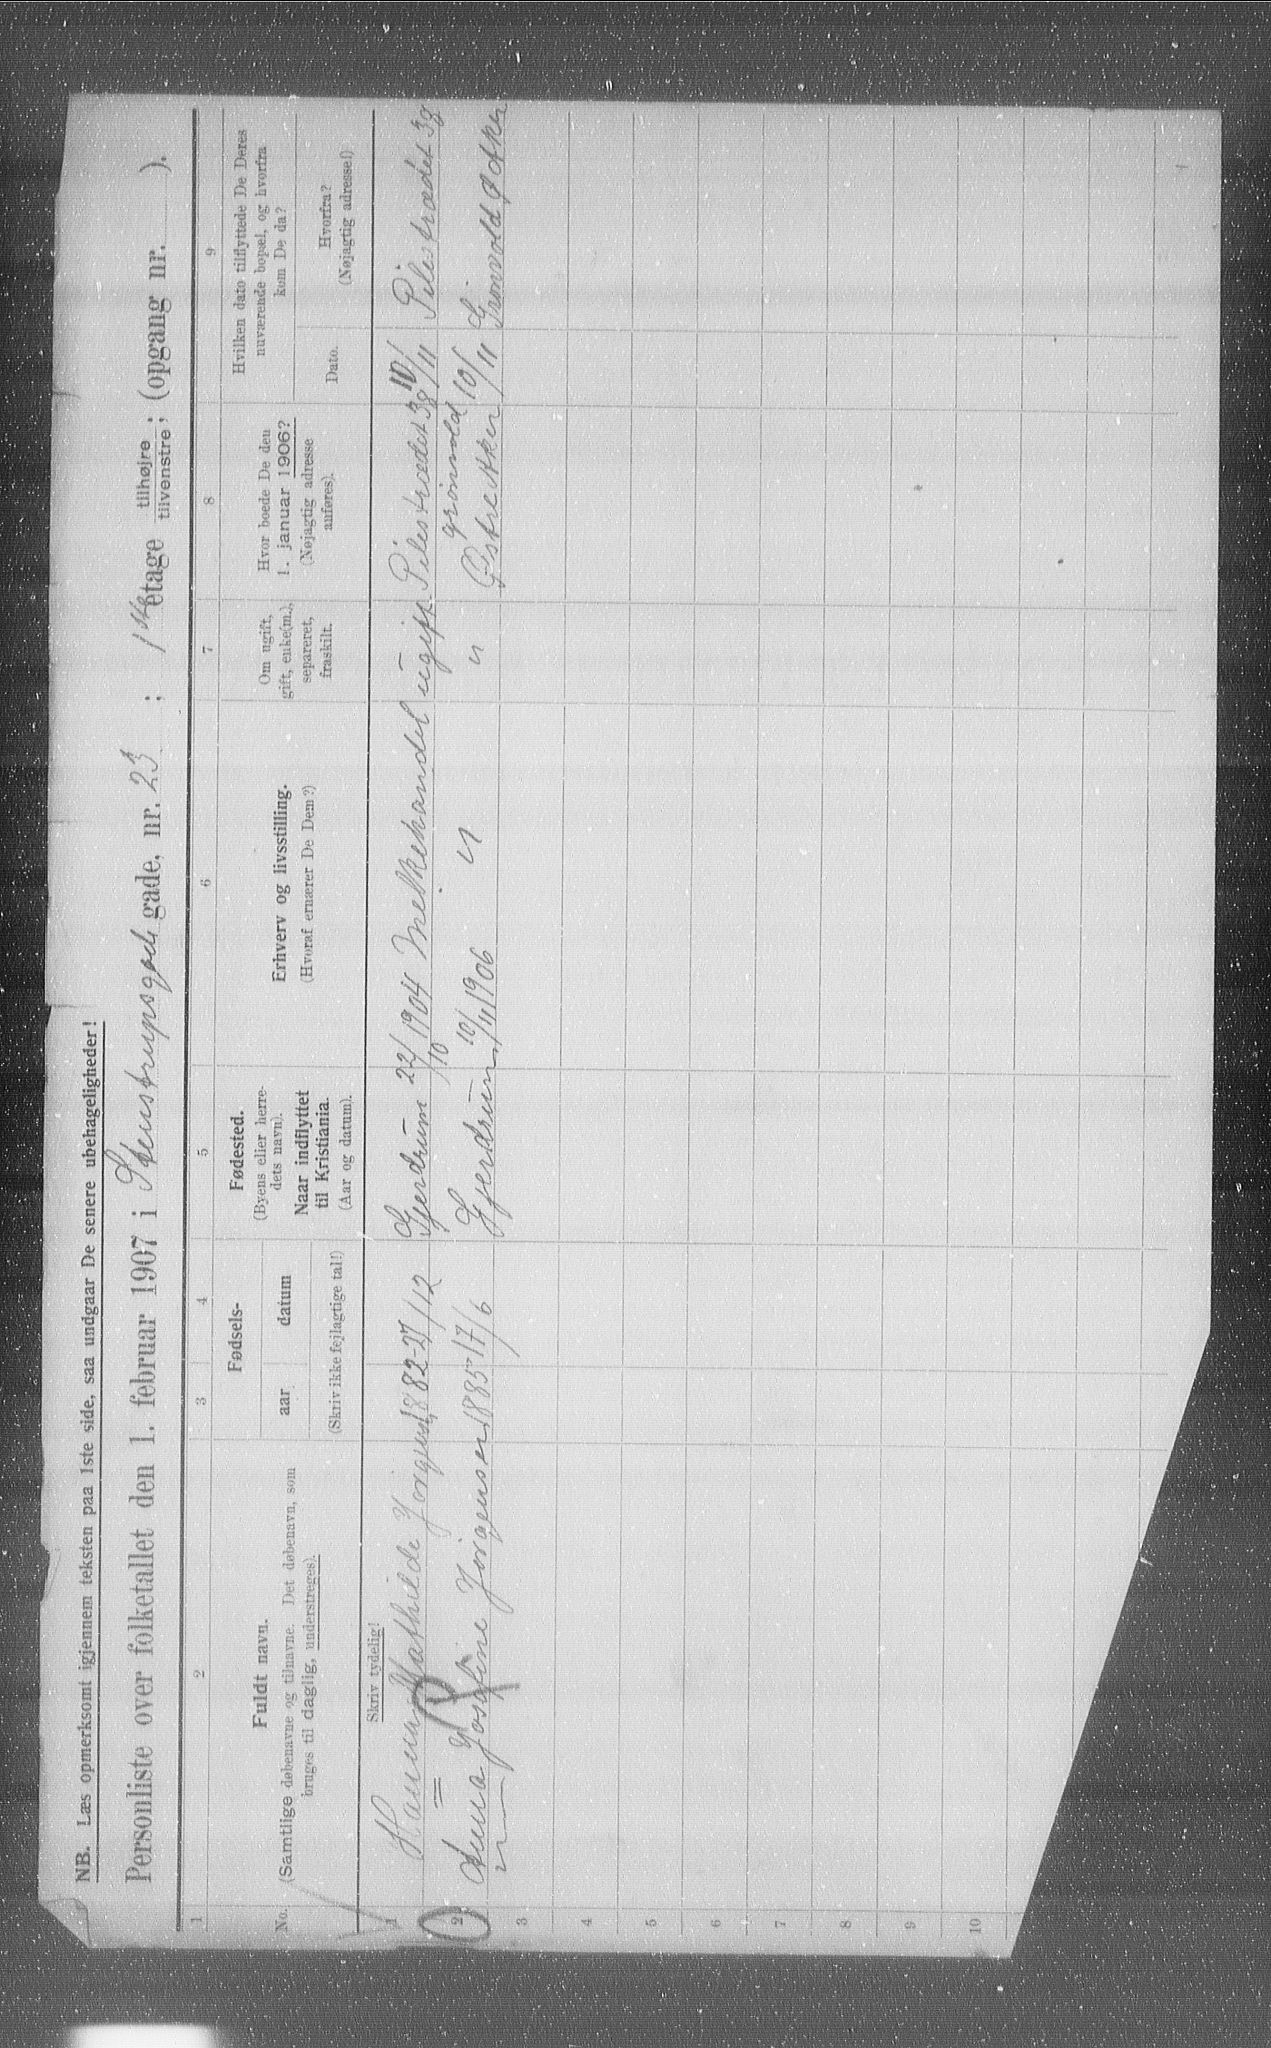 NB. Læs opmerksomt igjennem teksten paa 1ste side, saa undgaar De senere ubehageligheder!
Personliste over folketallet den 1. februar 1907 i Stenstrupsgade gade, nr. 23 ; 1ste etage tilhøjre / tilvenstre ; (opgang nr. ).
1 2 3 4 5 6 7 8 9
No.
Fuldt navn.
(Samtlige døbenavne og tilnavne. Det døbenavn, som
bruges til daglig, understreges).
Fødsels-
aar datum
(Skriv ikke fejlagtige tal!)
Fødested.
(Byens eller herre-
dets navn).
Naar indflyttet
til Kristiania.
(Aar og datum).
Erhverv og livsstilling.
(Hvoraf ernærer De Dem?)
Om ugift,
gift, enke(m.),
separeret,
fraskilt.
Hvor boede De den
1. januar 1906?
(Nøjagtig adresse
anføres).
Hvilken dato tilflyttede De Deres
nuværende bopæl, og hvorfra
kom De da?
Dato.
Hvorfra?
(Nøjagtig adresse!)
Skriv tydelig!
1 Hanna Mathilde Jørgensen 1882 - 27/12 Gjerdrum 22/10 1904 Melkehandel ugift Pilestrædet 38 10/11 Pilestrædet 38
2 Anna Josefine Jørgensen 1885 17/6 Gjerdrum 10/11 1906 " " Grønvold Østre Aker 10/11 Grønvold Ø Aker
3
4
5
6
7
8
9
10